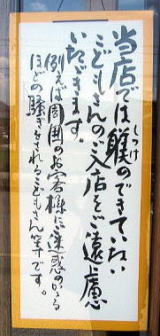 当店では躾のできていない
しつけ
こどもさんのご入店をご遠慮
いただきます。
例えば周囲のお客様にご迷惑のかかる
ほどの騒ぎをされるこどもさん等です。